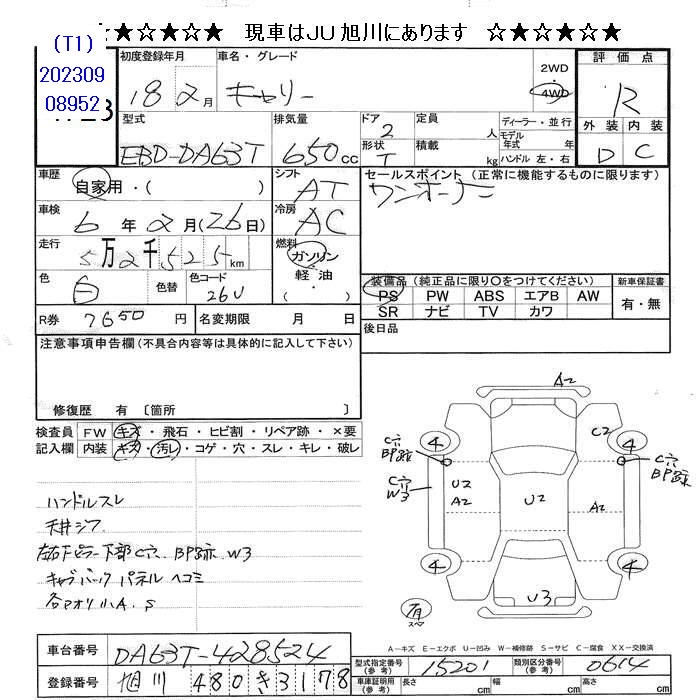 ★☆★☆★ 現車はJU旭川にあります ☆★☆★☆
(T1)
202309
08952
初度登録年月 車名・グレード 2WD 評価点
18 2月 キャリー 4WD R
型式 排気量 ドア 定員 ディーラー・並行 外装 内装
EBD-DA63T 650cc 2 人 モデル年式 年 D C
形状 T 積載 kg ハンドル 左・右
車歴 自家用・( ) シフト AT セールスポイント (正常に機能するものに限ります)
ワンオーナー
車検 6年2月(26日) 冷房 AC
走行 5万2千525km 燃料 ガソリン 軽油 ・( )
色 白 色替 色コード 26U
装備品 (純正品に限り○をつけてください) 新車保証書
PS PW ABS エアB AW 有・無
SR ナビ TV カワ
R券 7650円 名変期限 月 日 後日品
注意事項申告欄(不具合内容等は具体的に記入して下さい)
修復歴 有 〔箇所 〕
検査員 FW キズ・飛石・ヒビ割・リペア跡・×要
記入欄 内装 キズ・汚レ・コゲ・穴・スレ・キレ・破レ
ハンドルスレ
天井シワ
左右下ピラー下部C穴 BP跡 W3
キャブバックパネルヘコミ
各アオリ小A.S
A2
4 C2 4
C穴 BP跡 C穴 BP跡
C穴 W3 U2 A2 U2 A2
4 4
U3
有 スペア
A-キズ E-エクボ U-凹み W-補修跡 S-サビ C-腐食 XX-交換済
車台番号 DA63T-428524
型式指定番号(参考) 15201 類別区分番号(参考) 0614
登録番号 旭川 480 き 3178
車庫証明用(参考) 長さ cm 幅 cm 高さ cm